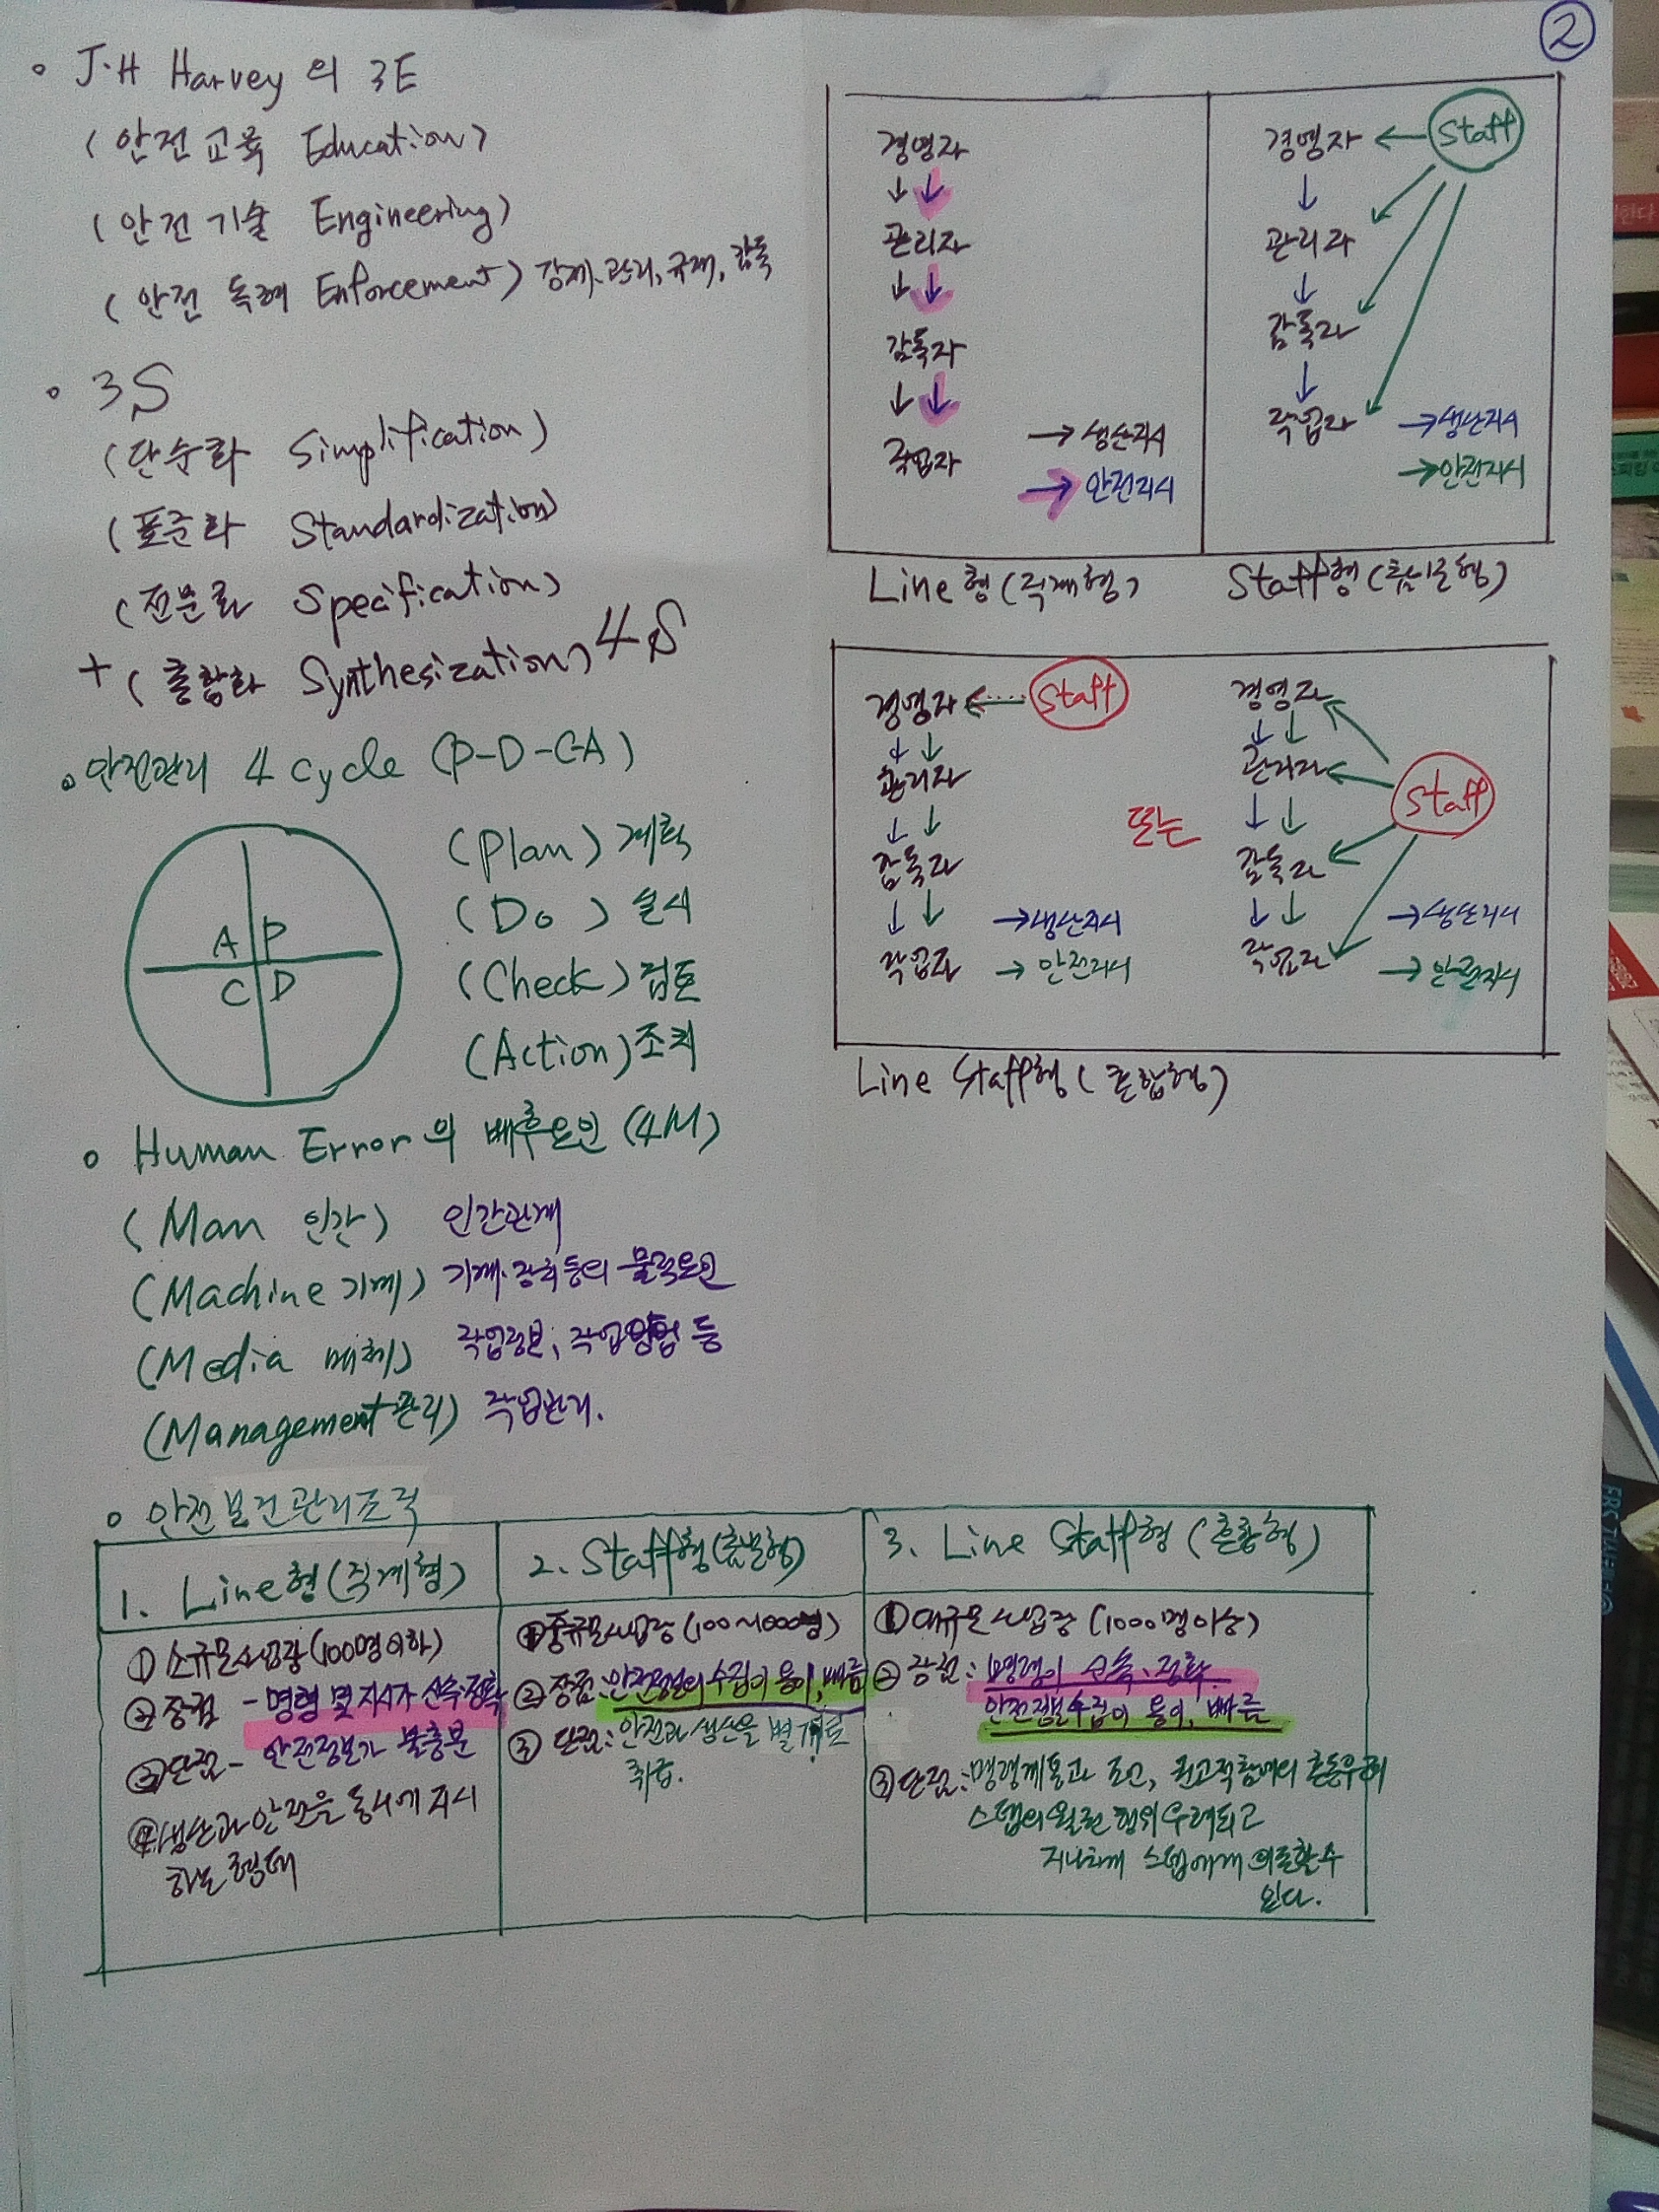 ②
◦ J.H Harvey의 3E
(안전교육 Education)
(안전기술 Engineering)
(안전 독려 Enforcement) 강제, 관리, 규제, 감독
◦ 3S
(단순화 Simplification)
(표준화 Standardization)
(전문화 Specification)
+ (종합화 Synthesization) 4S
◦ 안전관리 4 cycle (P-D-C-A)
A P
C D
(Plan) 계획
(Do) 실시
(Check) 검토
(Action) 조치
◦ Human Error의 배후요인 (4M)
(Man 인간) 인간관계
(Machine 기계) 기계·장치 등의 물적요인
(Media 매체) 작업정보, 작업방법 등
(Management 관리) 작업관리.
경영자
↓ ↓
관리자
↓ ↓
감독자
↓ ↓
작업자
→ 생산지시
→ 안전지시
Line형 (직계형)
경영자 ← Staff
↓
관리자
↓
감독자
↓
작업자
→ 생산지시
→ 안전지시
Staff형 (참모형)
경영자 ← Staff
↓ ↓
관리자
↓ ↓
감독자
↓ ↓
작업자
→ 생산지시
→ 안전지시
또는
경영자
↓ ↓
관리자
Staff
↓ ↓
감독자
↓ ↓
작업자
→ 생산지시
→ 안전지시
Line Staff형 (혼합형)
◦ 안전보건관리조직
1. Line형 (직계형)
① 소규모사업장 (100명이하)
② 장점 - 명령 및 지시가 신속·정확
③ 단점 - 안전정보가 불충분
④ 생산과 안전을 동시에 지시
하는 형태
2. Staff형 (참모형)
① 중규모사업장 (100~1000명)
② 장점: 안전정보의 수집이 용이, 빠름
③ 단점: 안전과 생산을 별개로
취급.
3. Line Staff형 (혼합형)
① 대규모사업장 (1000명이상)
② 장점: 명령이 신속·정확
안전정보수집이 용이, 빠름
③ 단점: 명령계통과 조언, 권고적참여의 혼동우려
스텝의 월권 행위 우려되고
지나치게 스텝에게 의존할 수
있다.